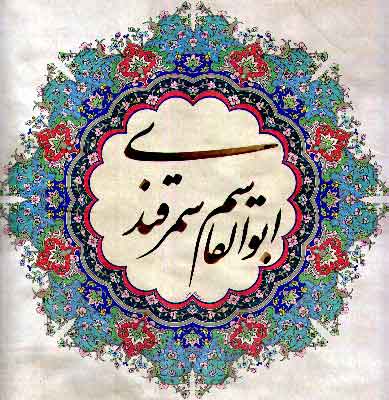 ابوالقاسم سمرقندی